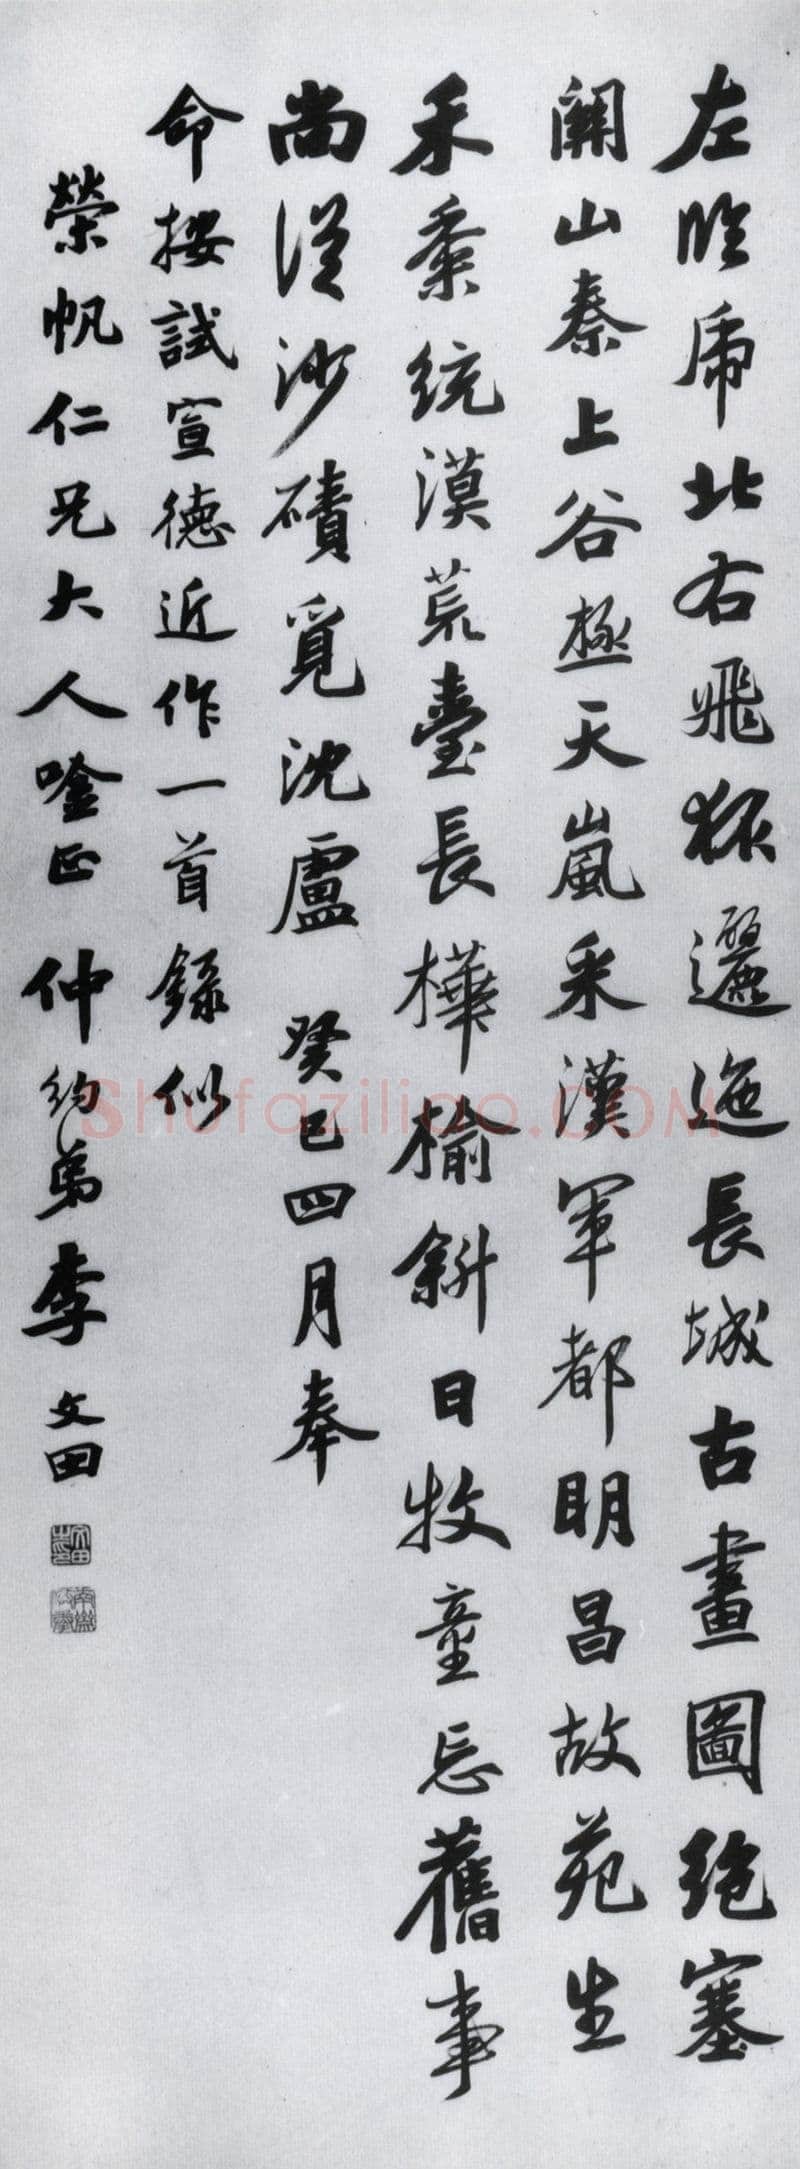 左臨虎北右飛狐邐迤長城古畫圖絶塞
關山秦上谷極天嵐采漢軍都明昌故苑生
禾黍統漠荒臺長樺榆斜日牧童忘舊事
尚從沙磧覓沈盧 癸巳四月奉
命按試宣德近作一首錄似
榮帆仁兄大人唫正 仲約弟李文田
Shufaziliao.COM